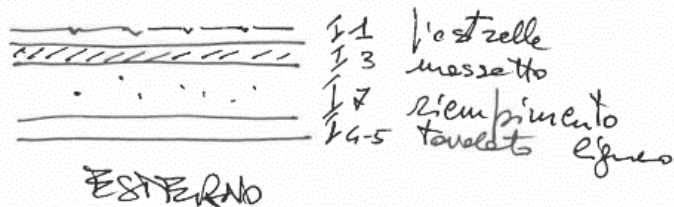 I1 piastrelle
I3 massetto
I7 riempimento
I4-5 tavolato ligneo
ESTERNO